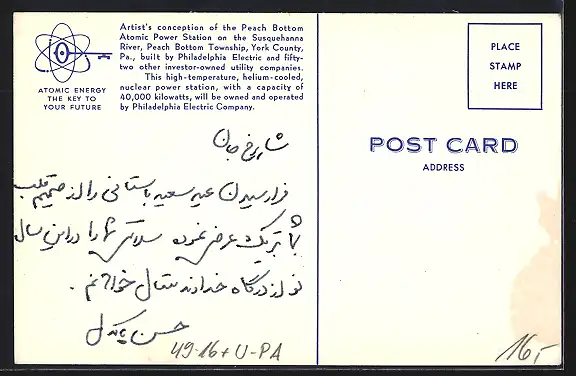 Artist's conception of the Peach Bottom
Atomic Power Station on the Susquehanna
River, Peach Bottom Township, York County,
Pa., built by Philadelphia Electric and fifty-
two other investor-owned utility companies.
This high-temperature, helium-cooled,
nuclear power station, with a capacity of
40,000 kilowatts, will be owned and operated
by Philadelphia Electric Company.
ATOMIC ENERGY
THE KEY TO
YOUR FUTURE
شاهرخ جان
فرا رسیدن عید سعید باستانی را از صمیم قلب
تبریک عرض نموده سلامتی شما را در این سال
نو از درگاه خداوند متعال خواهانم .
حسن
49-16+ U-PA
PLACE
STAMP
HERE
POST CARD
ADDRESS
16,-